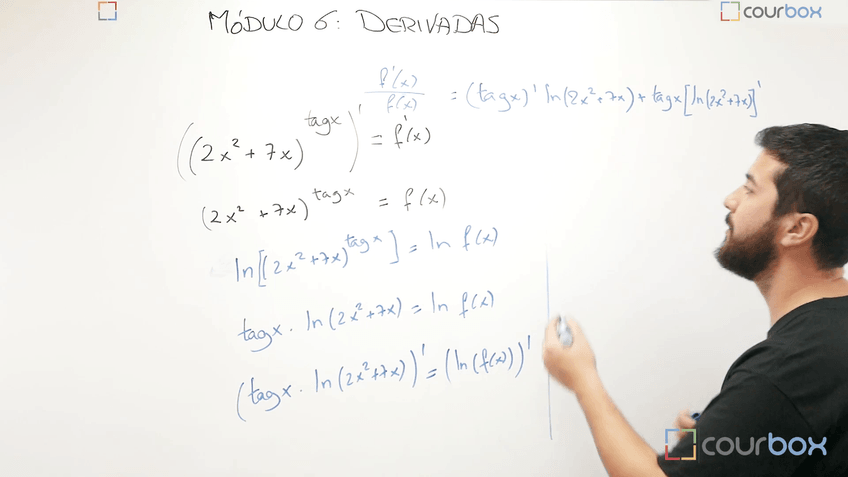 MÓDULO 6: DERIVADAS
courbox
f'(x)/f(x) = (tagx)' ln(2x²+7x) + tagx[ln(2x²+7x)]'
((2x²+7x)^tagx)' = f'(x)
(2x²+7x)^tagx = f(x)
ln[(2x²+7x)^tagx] = ln f(x)
tagx · ln(2x²+7x) = ln f(x)
(tagx · ln(2x²+7x))' = (ln(f(x)))'
courbox